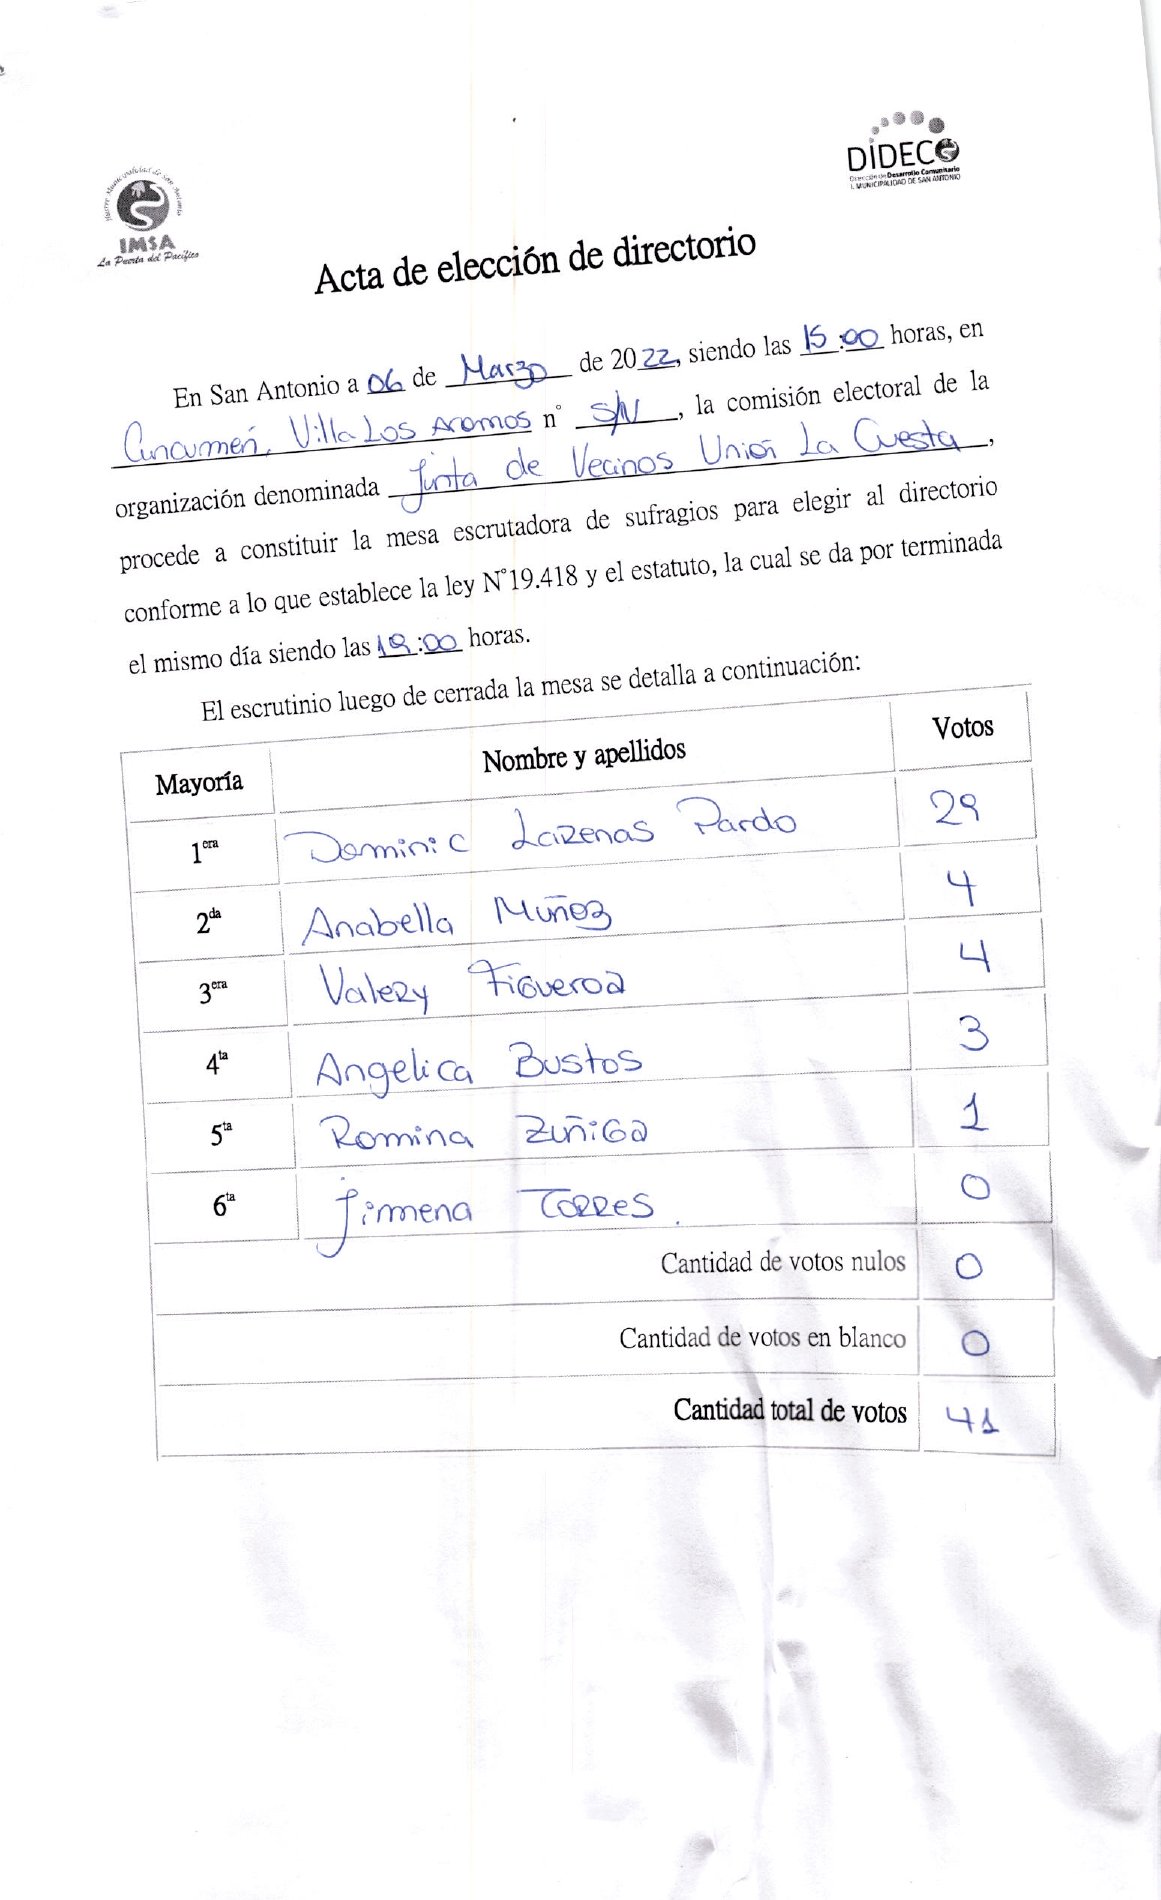 Ilustre Municipalidad de San Antonio
IMSA
La Puerta del Pacífico
DIDECO
Dirección de Desarrollo Comunitario
I. MUNICIPALIDAD DE SAN ANTONIO
Acta de elección de directorio
En San Antonio a 06 de Marzo de 2022, siendo las 15:00 horas, en
Cuncumen, Villa Los Aromos n° S/N, la comisión electoral de la
organización denominada Junta de Vecinos Union La Cuesta,
procede a constituir la mesa escrutadora de sufragios para elegir al directorio
conforme a lo que establece la ley N°19.418 y el estatuto, la cual se da por terminada
el mismo día siendo las :00 horas.
El escrutinio luego de cerrada la mesa se detalla a continuación:
Mayoría Nombre y apellidos Votos
1era Dominic Pardo 29
2da Anabella Muñoz 4
3era Valery Figueroa 4
4ta Angelica Bustos 3
5ta Romina Zuñiga 1
6ta Jimena Torres. 0
Cantidad de votos nulos 0
Cantidad de votos en blanco 0
Cantidad total de votos 41